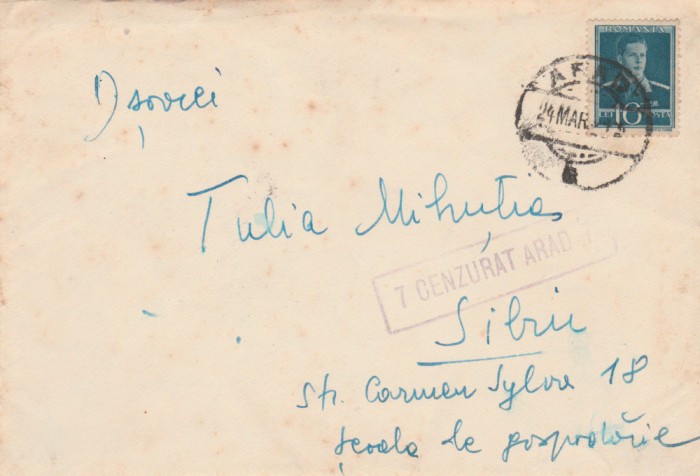 ROMANIA
LEI 16 POSTA
ARAD
24 MAR.
Dșovrei
Tulia Mihuția
7 CENZURAT ARAD
Sibiu
Str. Carmen Sylva 18
Școala de gospodărie